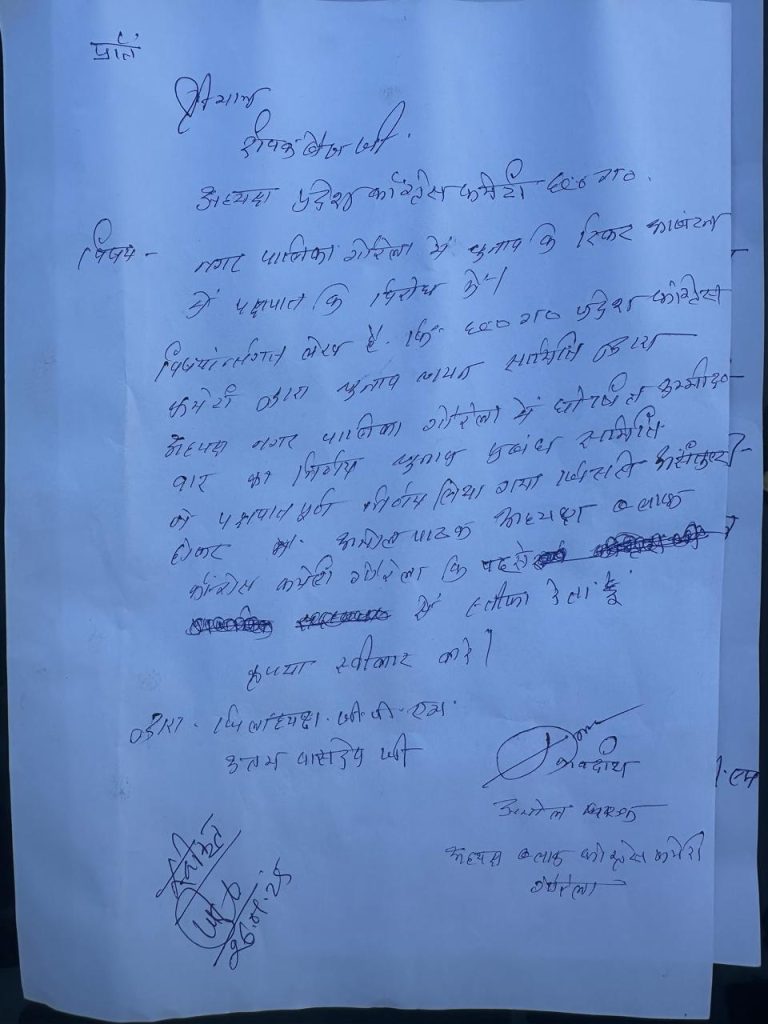 प्रति
श्रीमान
दीपक बैज जी.
अध्यक्ष प्रदेश कॉंग्रेस कमेटी छ०ग०.
विषय - नगर पालिका गौरेला में चुनाव कि टिकट
में पक्षपात कि विरोध
विषयांर्तगत लेख है. कि छ०ग० प्रदेश कॉंग्रेस
कमेटी द्वारा चुनाव चयन समिति
अध्यक्ष नगर पालिका गौरेला में घोषित उम्मीद-
वार का निर्णय चुनाव प्रबंध समिति
ने पक्षपात पूर्ण निर्णय लिया गया जिससे असंतुष्ट
होकर मैं. अमोल पाठक अध्यक्ष ब्लाक
कॉंग्रेस कमेटी गौरेला कि पद से
से स्तीफा देता हूं
कृपया स्वीकार करे।
द्वारा. जिलाध्यक्ष. जी. पी. एम.
उत्तम वासुदेव जी
भवदीय
अमोल पाठक
अध्यक्ष ब्लाक कॉंग्रेस कमेटी
गौरेला
. एम
26.01.25